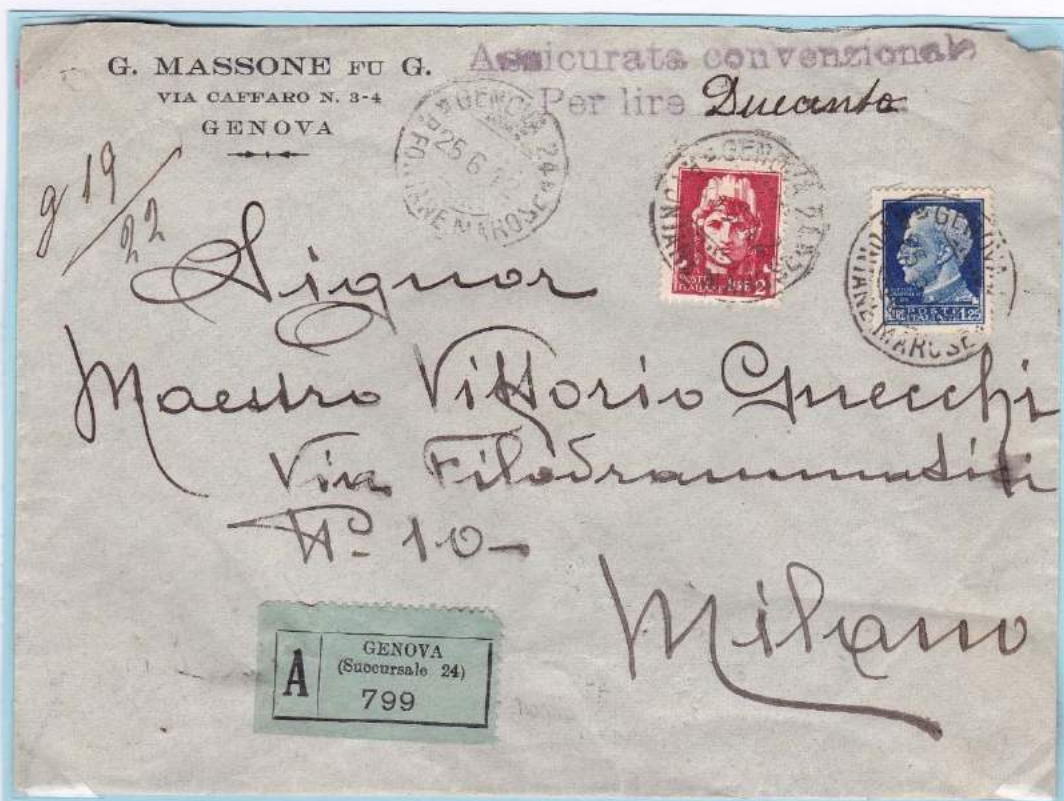 G. MASSONE FU G.
VIA CAFFARO N. 3-4
GENOVA
Assicurata convenzionale
Per lire Ducento
g 19/22
GENOVA 24
25 6
FONTANE MAROSE
GENOVA 24
POSTE ITALIANE
LIRE 2
GENOVA
FONTANE MAROSE
POSTE
ITALIANE
1.25
Signor
Maestro Vittorio Gnecchi
Via Filodrammatici
N. 10-
Milano
A
GENOVA
(Succursale 24)
799